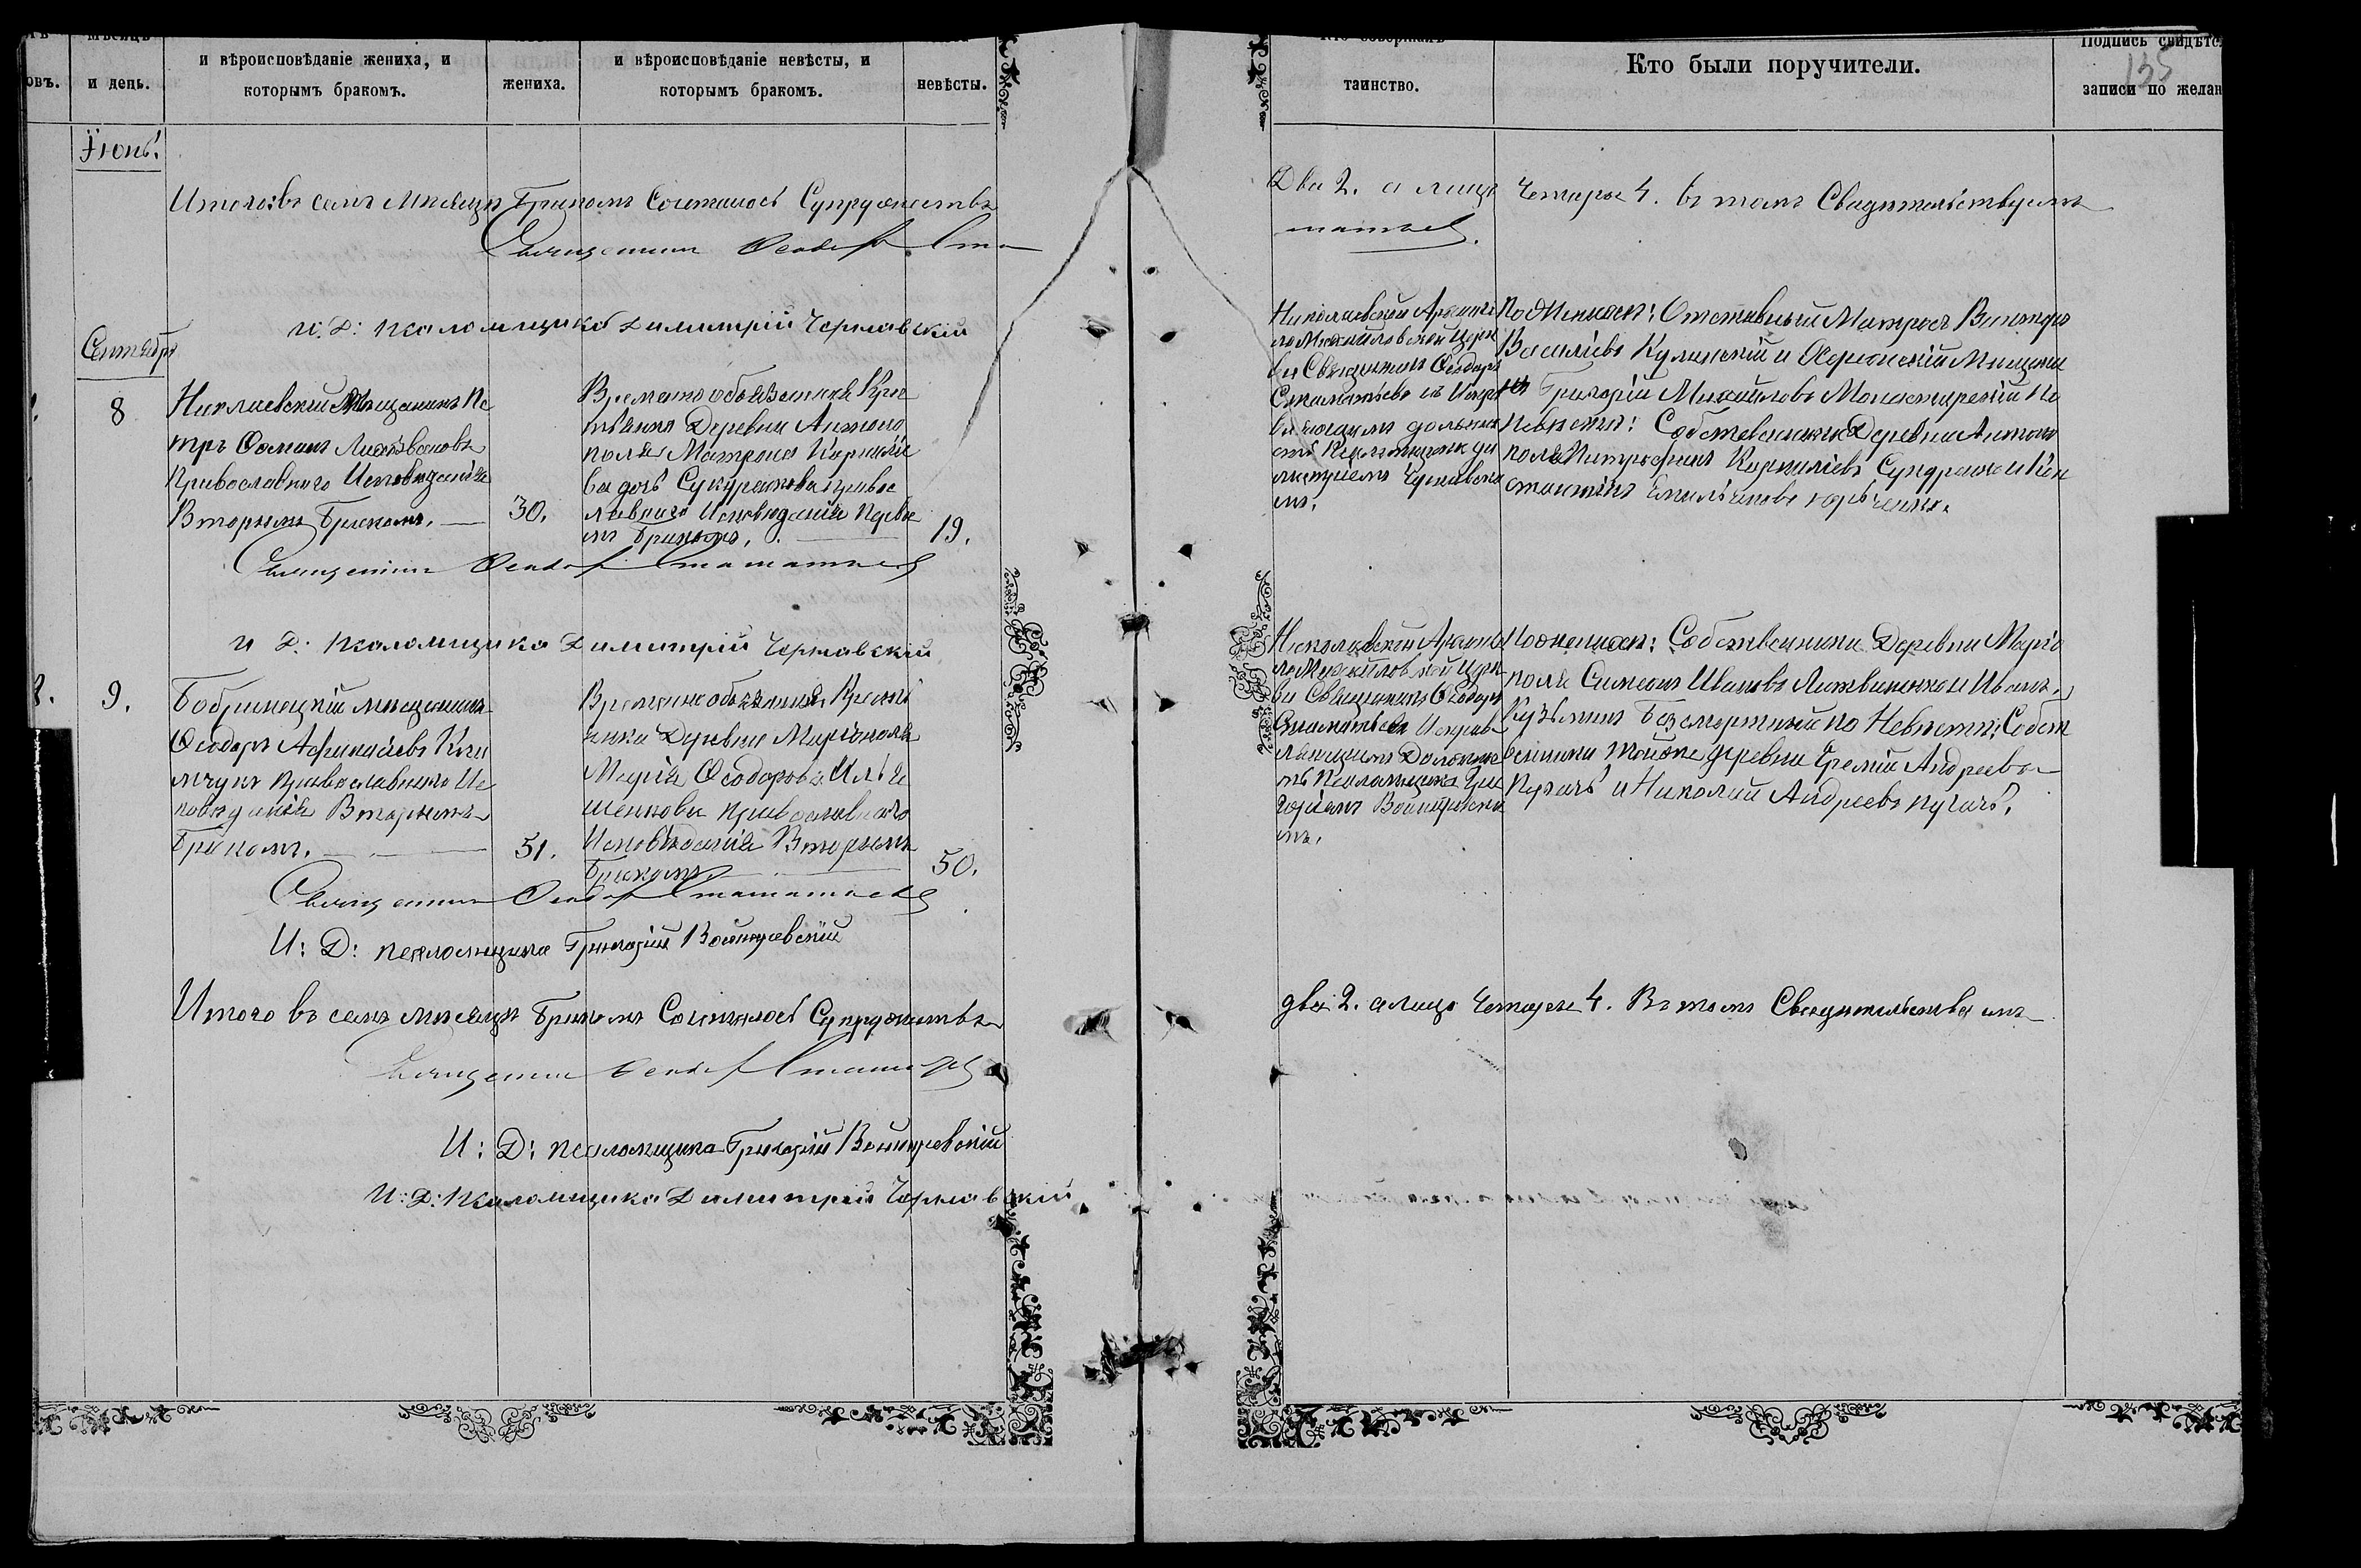 и вѣроисповѣданіе жениха, и
которымъ бракомъ.
и день.
жениха.
и вѣроисповѣданіе невѣсты, и
которымъ бракомъ.
невѣсты.
таинство.
Кто были поручители.
записи по желан
135
Іюнь.
Итого въ семъ мѣсяцѣ Бракомъ Сочеталось Супружествъ
Два 2. а лицъ Четыре 4. въ томъ Свидѣтельствуемъ
Священникъ Ѳеодоръ
И. Д: Псаломщика Димитрій Чернявскій
Сентябрь
8
Николаевскій Мѣщанинъ Пе
тръ Ѳоминъ
Православнаго Исповѣданія
Вторымъ Бракомъ.
30.
Временно обязанная Крес
тьянка Деревни Антоно
поля Матрона Корнилie
ва дочь Сукуренкова правос
лавнаго Исповѣданія Первы
мъ Бракомъ.
19.
Николаевской Арханге
ло Михайловской Церк
ви Священникъ Ѳеодоръ
Стаматьевъ съ Исправ
ляющимъ должно
сть Псаломщика Ди
митріемъ Чернявски
мъ.
По Женихѣ: Отставный Матросъ
Василіевъ Кулинскій и Херсонскій Мѣщани
нъ Григорій Михайловъ Монастырскій По
Невѣстѣ: Собственники Деревни Антоно
поля Митрофанъ Корниліевъ и Кон
стантинъ Емильяновъ
Священникъ Ѳеодоръ Стаматьевъ
И Д: Псаломщика Димитрій Чернявскій
9.
Бобринецкій мѣщанинъ
Ѳеодоръ Афанасіевъ
Православнаго Ис
повѣданія Вторымъ
Бракомъ.
51.
Временно обязанная Крестья
нка Деревни Маріополя
Марія Ѳеодорова Илья
шенкова Православнаго
Исповѣданія Вторымъ
Бракомъ.
50.
Николаевской Арханге
ло Михайловской Церк
ви Священникъ Ѳеодоръ
Стаматьевъ Исправ
ляющимъ Должнос
ть Псаломщика Гри
горіемъ Войцеховски
мъ.
По Женихѣ: Собственники Деревни Маріо
поля Симеонъ Ивановъ Литвиненко и Иванъ
Кузьминъ Безсмертный по Невѣстѣ: Собст
венники тойже деревни Еремій Андреевъ
Пугачъ и Николай Андреевъ Пугачъ.
Священникъ Ѳеодоръ Стаматьевъ
И: Д: псаломщика Григорій
Итого въ семъ мѣсяцѣ Бракомъ Сочеталось Супружествъ
два 2. а лицъ Четыре 4. Въ томъ Свидѣтельствуемъ
Священникъ Ѳеодоръ Стаматьевъ
И: Д: псаломщика Григорій
И: Д: Псаломщика Димитрій Чернявскій